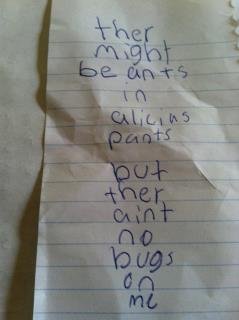 ther
might
be ants
in
alicias
pants
but
ther
aint
no
bugs
on
me